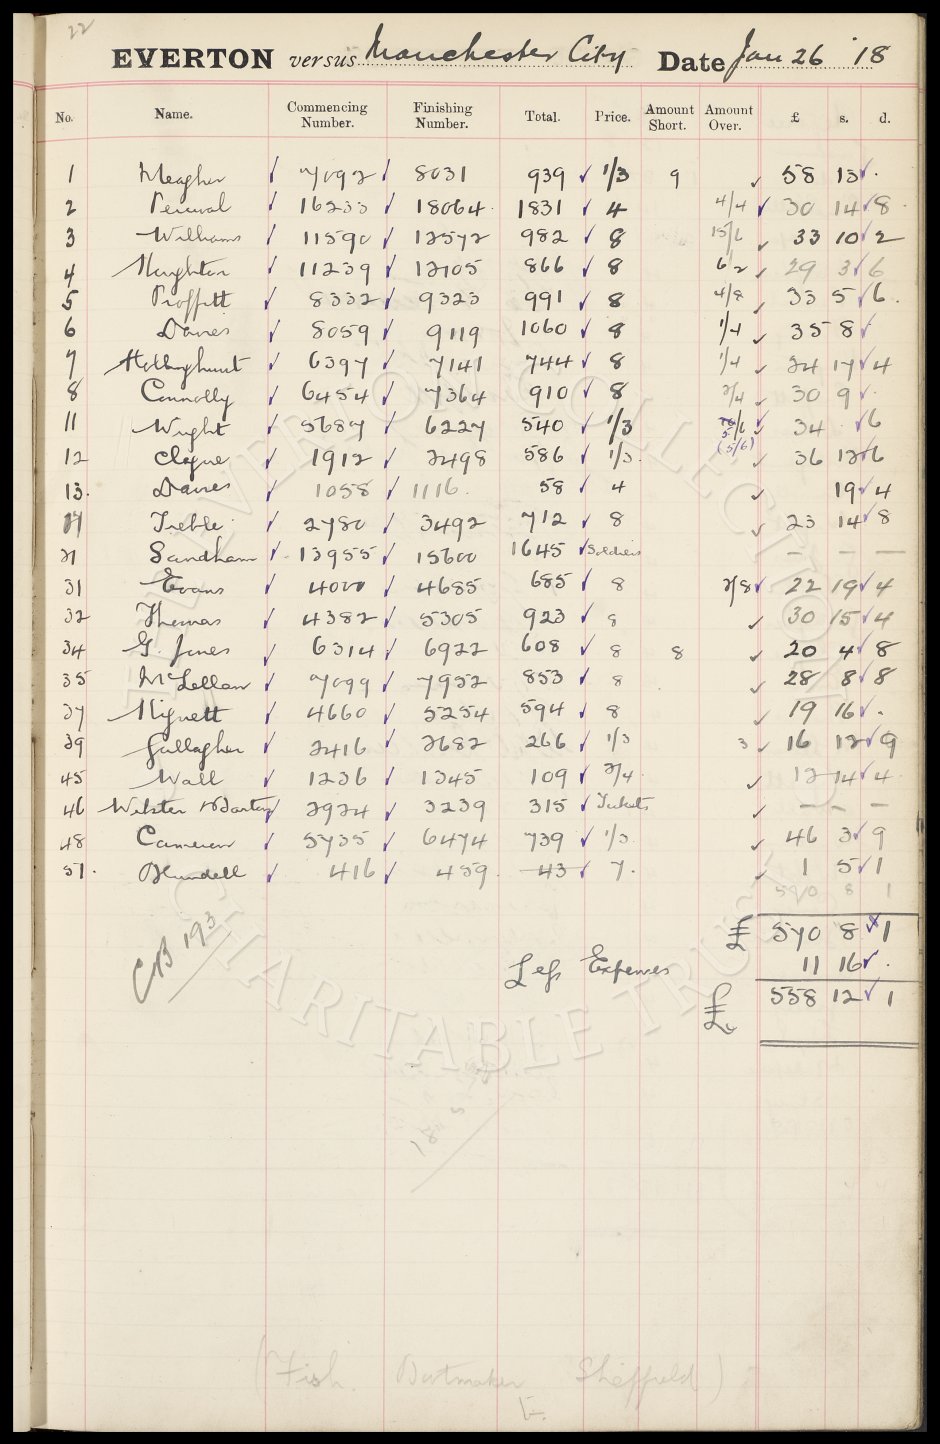 22
EVERTON versus Manchester City Date Jan 26 '18
No. Name. Commencing Number. Finishing Number. Total. Price. Amount Short. Amount Over. £ s. d.
1 Meagher 7092 8031 939 1/3 9 58 13 .
2 Percival 16233 18064 1831 4 4/4 30 14 8
3 Williams 11590 12572 982 8 15/6 33 10 2
4 Houghton 11239 12105 866 8 6/2 29 3 6
5 Proffitt 8332 9323 991 8 4/8 33 5 6
6 Davies 8059 9119 1060 8 1/4 35 8
7 Hollinghurst 6397 7141 744 8 1/4 24 17 4
8 Connolly 6454 7364 910 8 2/4 30 9 .
11 Wright 5687 6227 540 1/3 5/6 34 . 6
(5/6)
12 Clague 1912 2498 586 1/3 36 12 6
13. Davies 1058 1116 58 4 19 4
17 Treble 2780 3492 712 8 23 14 8
21 Sandham 13955 15600 1645 Soldiers — — —
31 Evans 4000 4685 685 8 2/8 22 19 4
32 Thomas 4382 5305 923 8 30 15 4
34 G. Jones 6314 6922 608 8 8 20 4 8
35 McLellan 7099 7952 853 8 28 8 8
37 Mignett 4660 5254 594 8 19 16 .
39 Gallagher 2416 2682 266 1/3 3 16 12 9
45 Wall 1236 1345 109 2/4 12 14 4
46 Webster 2924 3239 315 Tickets — — —
48 Cameron 5735 6474 739 1/3 46 3 9
51. Blundell 416 459 43 7. 1 5 1
590 8 1
£ 570 8 1
CB 193
Less Expenses 11 16 .
£ 558 12 1
EVERTON COLLECTION
CHARITABLE TRUST
(Fish. Bootmaker Sheffield)